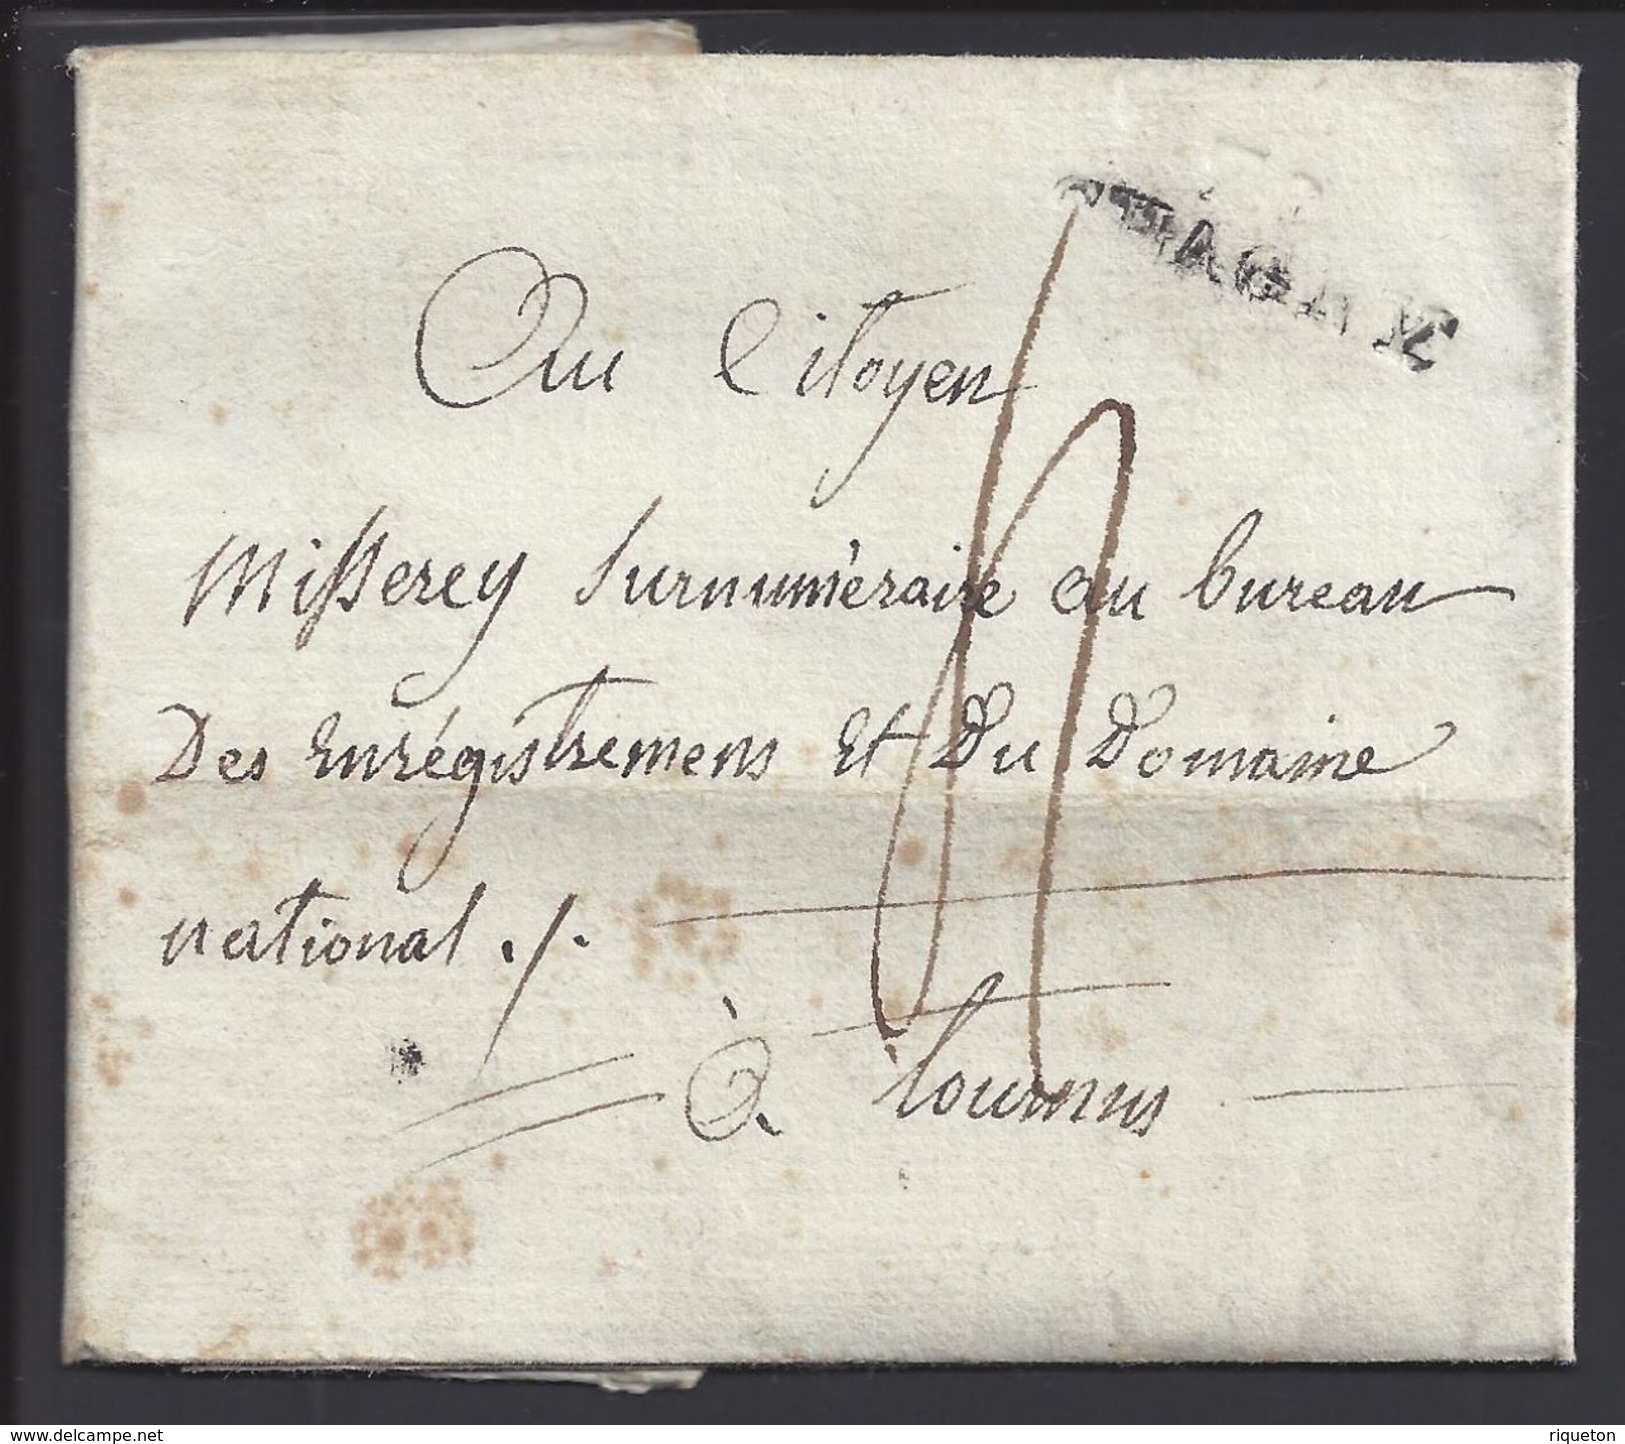 Au Citoyen
Misserey Surnuméraire au bureau
Des Enrégistremens Et Du Domaine
national ./.
à Tournus
www.delcampe.net
riqueton